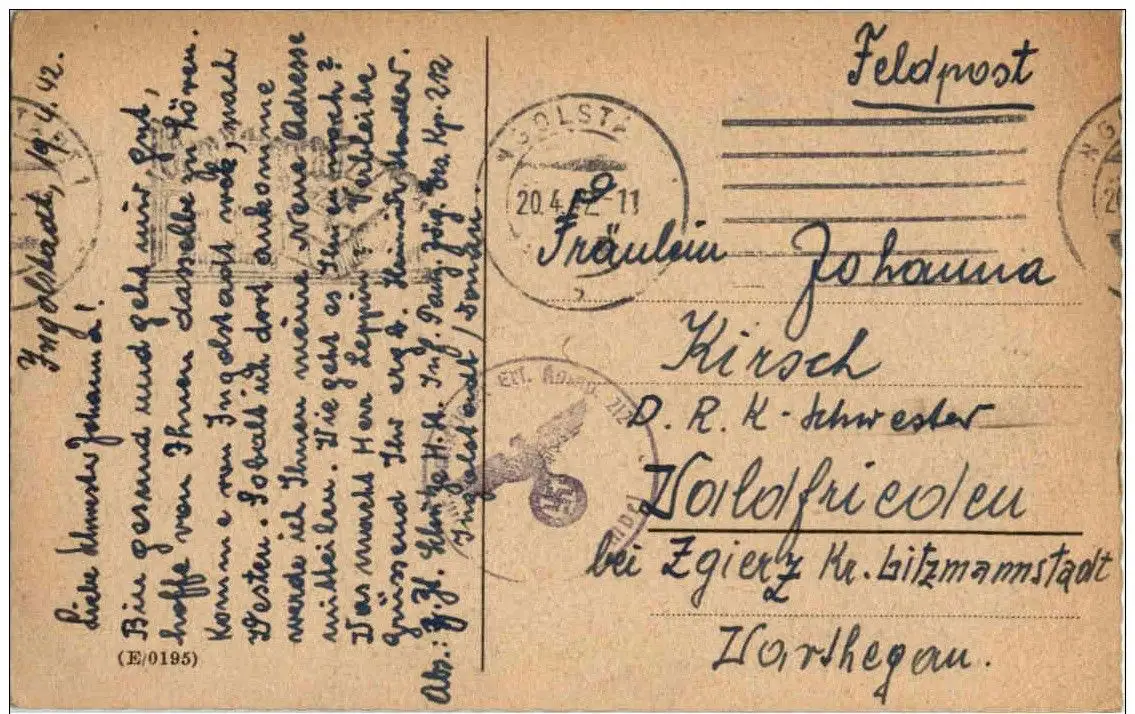 Ingolstadt, 19.4.42.
Liebe Schwester Johanna!
Bin gesund und geht mir gut,
hoffe von Ihnen dasselbe zu hören.
Komme von Ingolstadt weg, nach
Westen. Sobalt ich dort ankomme
werde ich Ihnen meine Neue Adresse
mitteilen. Wie geht es Ihnen noch?
Was macht Herr Leppin? Verbleibe
Grüssend Ihr ergb. Heinrich
Abs.: H.K. Inf. Panz. Jäg. Ers. Kp. 212
Ingolstadt/Donau.
(E/0195)
Feldpost
NGOLSTA
20.4.42-11
Fräulein Johanna
Kirsch
D. R. K-Schwester
Waldfrieden
bei Zgierz Kr. Litzmannstadt
Warthegau.
NGO